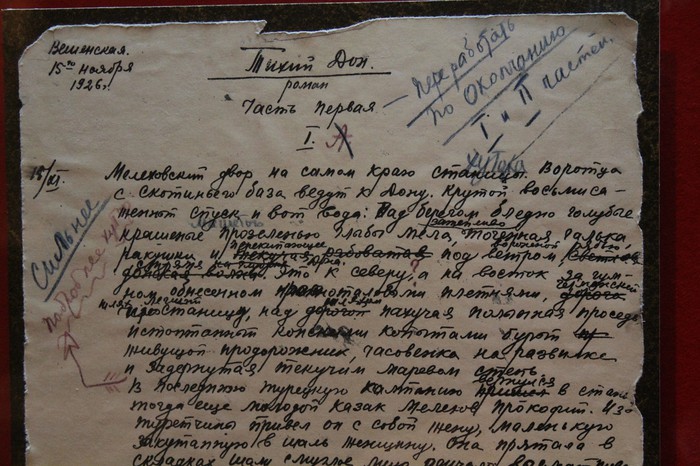 Вешенская.
15го ноября
1926г.
Тихий Дон.
роман
Часть первая
I.
— переработать
по окончанию
I и II частей.
15/XI.
Мелеховский двор на самом краю станицы. Воротца
хутора
с скотиньего база ведут к Дону. Крутой восьмиса-
женный спуск и вот вода: Над берегом бледно голубые
крашеные прозеленью глыбы мела, точеная галька
ракушки и перекипающее под ветром
Дона. Это к северу, а на восток за гум-
ном обнесенном плетнями,
станицу, над дорогой пахучая полынная проседь
истоптанный конскими копытами бурый
живущой придорожник, часовенка на развилке
и задернутая текучим маревом степь
В последнюю турецкую кампанию вернулся в стан.
тогда еще молодой казак Мелехов Прокофий. Из
туретчины привел он с собой жену, маленькую
закутанную в шаль женщину. Она прятала в
складках шали смуглое лицо
Сильнее
подробнее